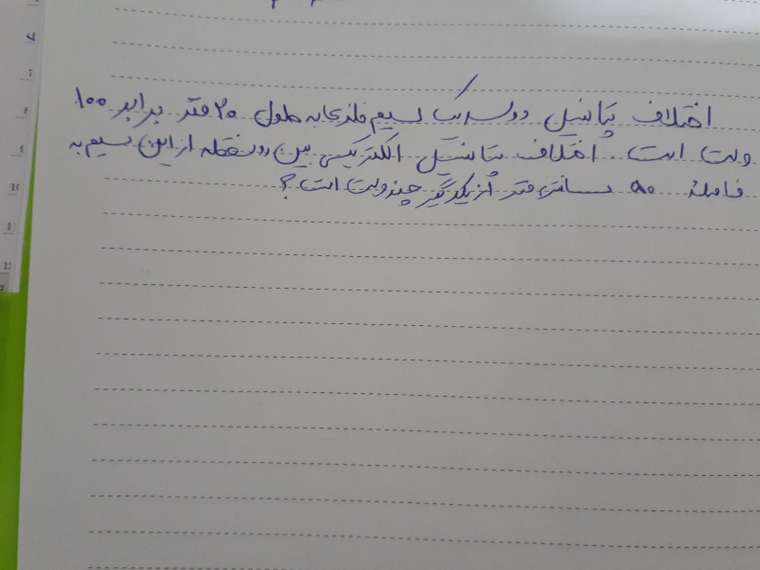 اختلاف پتانسیل دو سر یک سیم فلزی به طول ۲۰ متر برابر ۱۰۰
ولت است. اختلاف پتانسیل الکتریکی بین دو نقطه از این سیم به
فاصله ۵۰ سانتی متر از یکدیگر چند ولت است؟